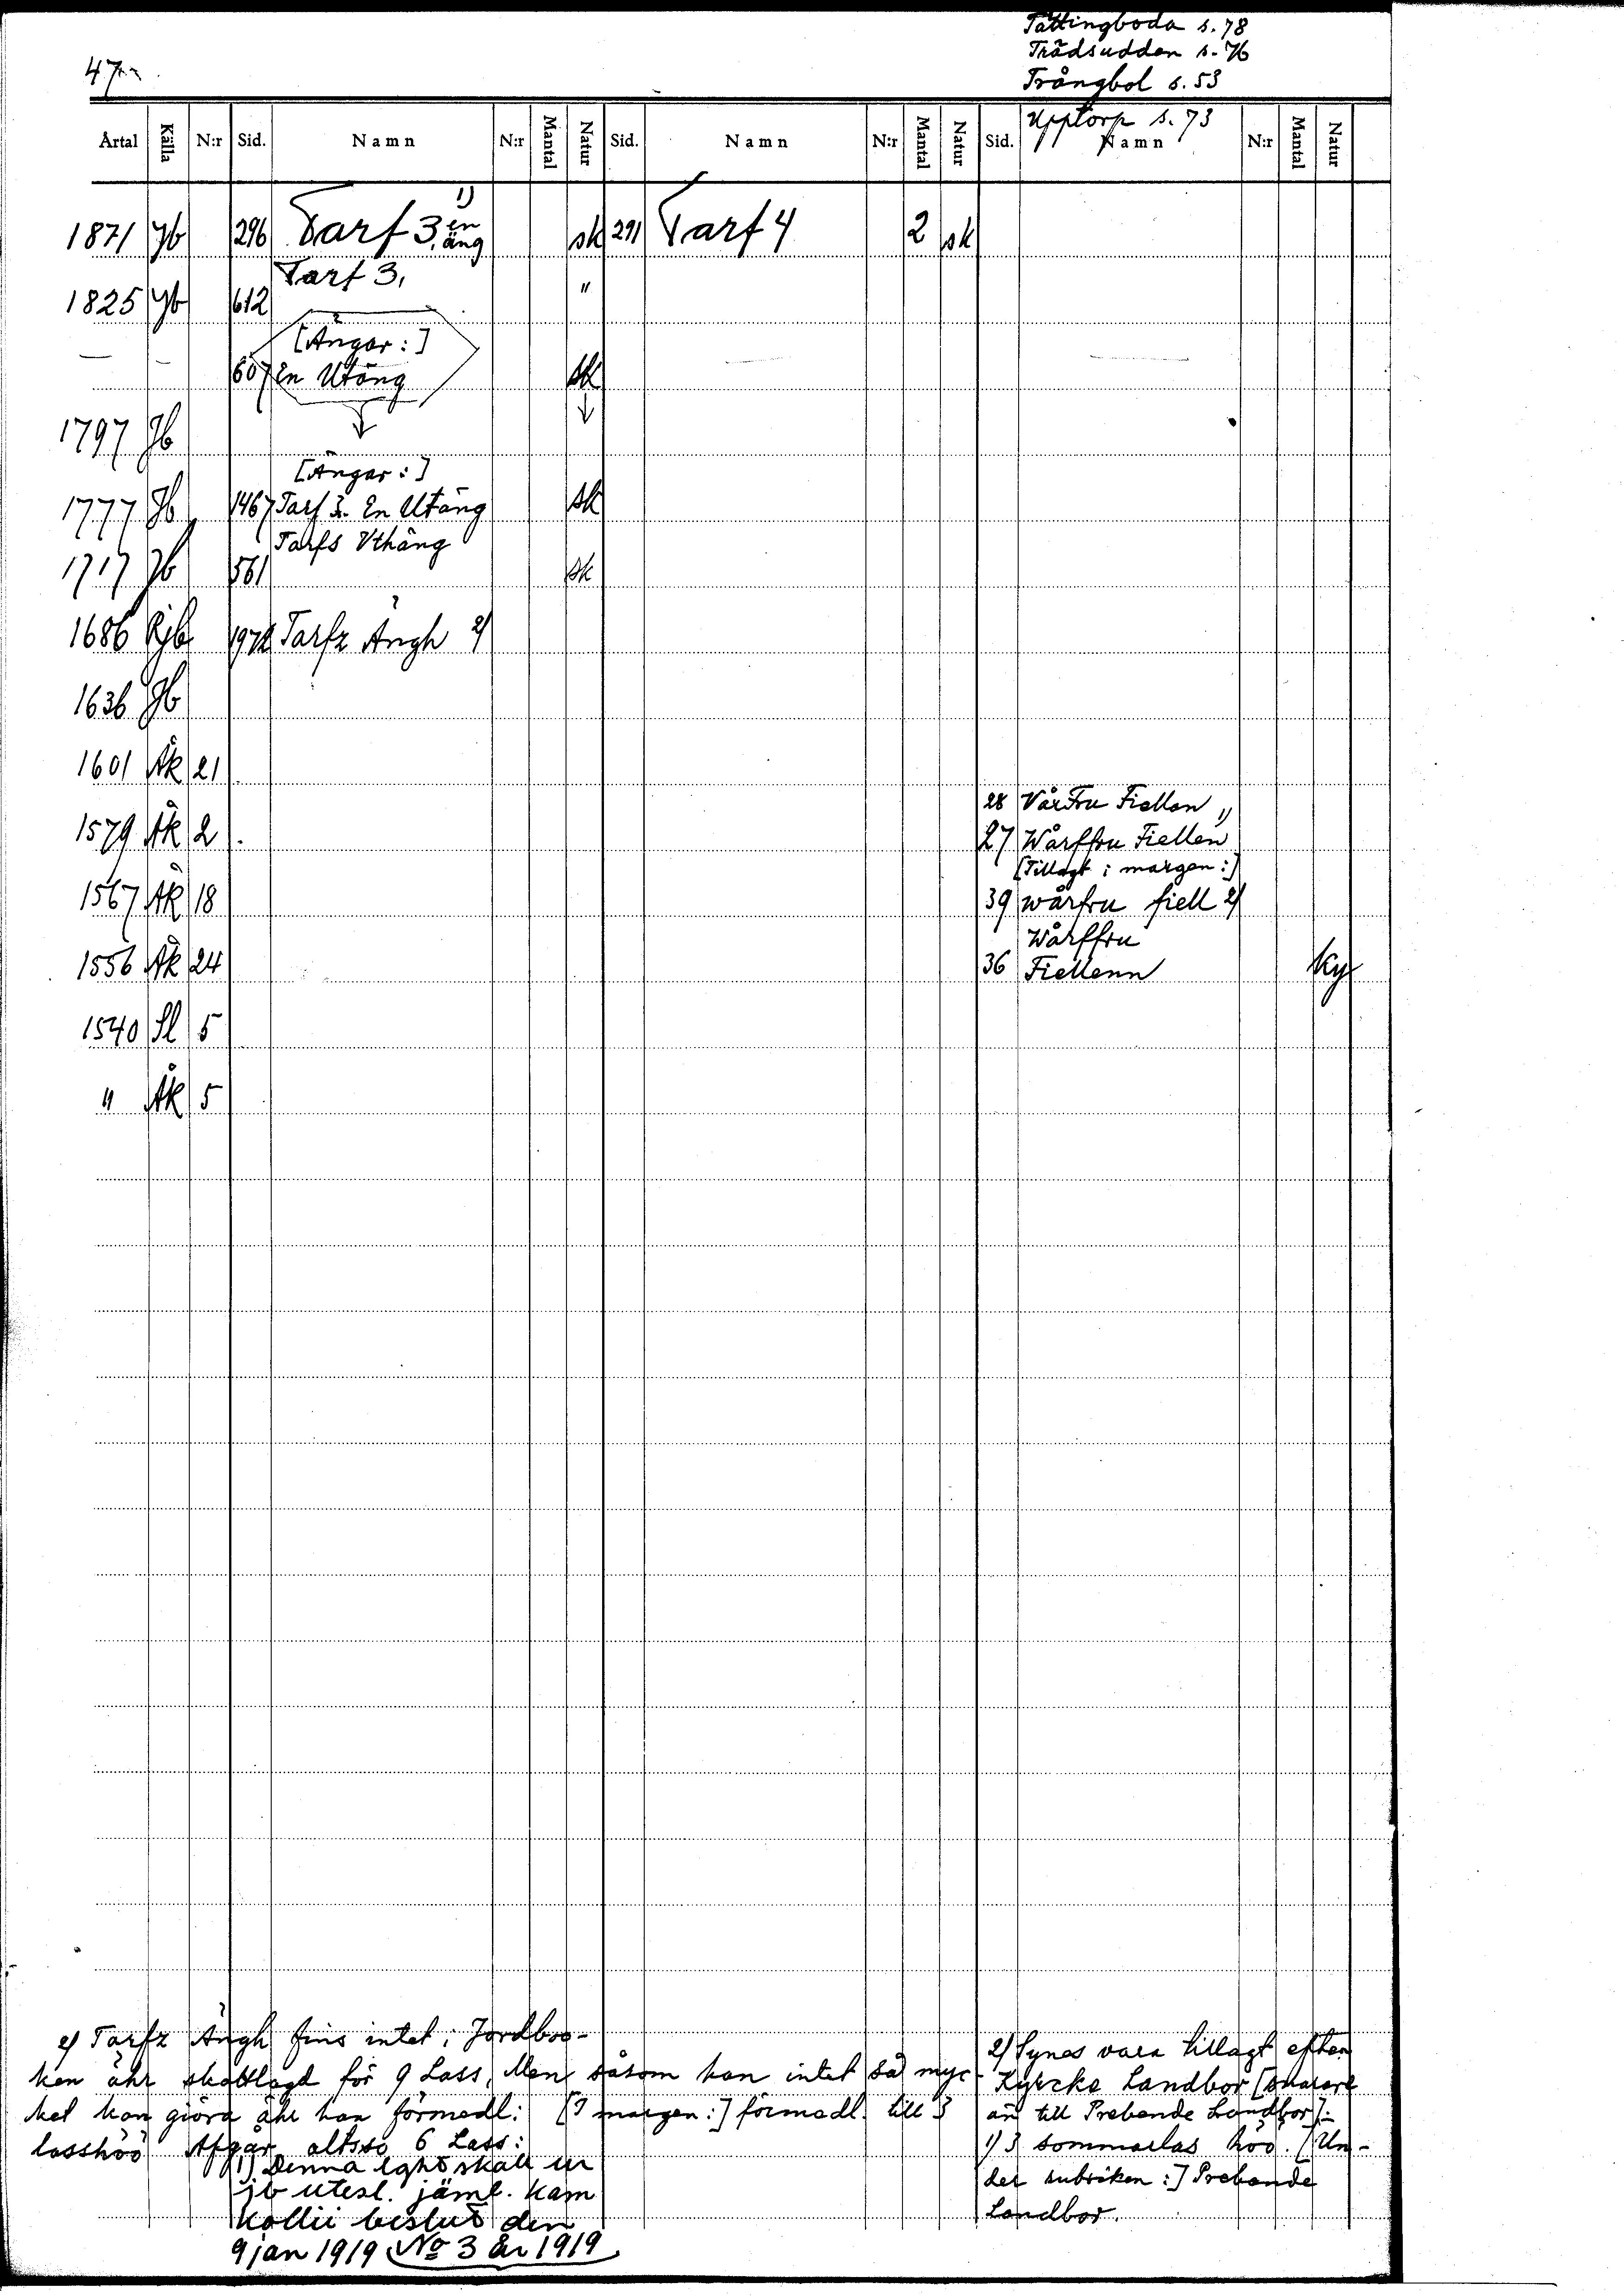 Tättingboda s. 78
Trädsudden s. 76
Trångbol s. 53
Upptorp s. 73
47
Årtal Källa N:r Sid. Namn N:r Mantal Natur Sid. Namn N:r Mantal Natur Sid. Namn N:r Mantal Natur
1871 Jb 296 Tarf 3, en äng 1) sk 291 Tarf 4 2 sk
Tarf 3,
1825 Jb 612 "
[Ängar:]
— — 607 En Utäng sk
1797 Jb
[Ängar:]
1777 Jb 1467 Tarf 3. En Utäng sk
Tarfs Vthäng
1717 Jb 561 sk
1686 Rjb Tarfz Ängh 2)
1636 Jb
1601 Åk 21
28 VårFru Fiellen 1)
1579 Åk 2 27 Wårffru Fiellen
[Tillagt i margen:]
1567 Åk 18 39 wårfru fiell 2)
Wårffru
1556 Åk 24 36 Fiellenn Ky
1540 Sl 5
" Åk 5
2) Tarfz Ängh fins intet i Jordboo-
ken ähr skattlagd för 9 Lass, Men såsom han intet så myc-
ket kan giöra ähr han förmedl: [I margen:] förmedl. till 3
lasshöö Afgår altsså 6 Lass:
1) Denna lght skall ur
jb utesl. jäml. Kam
Kollii beslut den
9 jan 1919 No 3 år 1919
2) Synes vara tillagt efter
Kyrcke Landbor [snarare
än till Prebende Landbor].
1) 3 sommarlas höö. [Un-
der rubriken:] Prebende
Landbor.